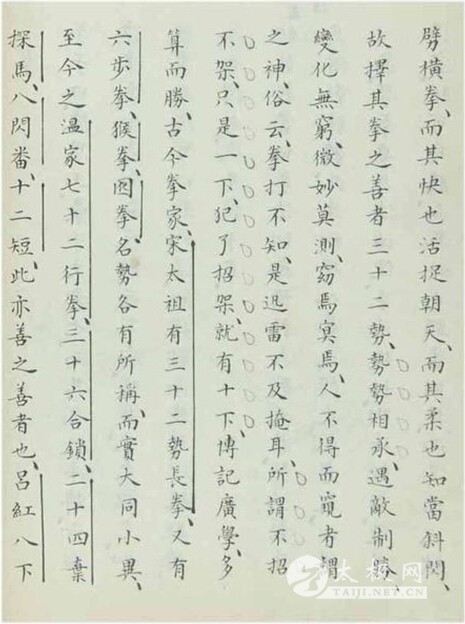 劈橫拳、而其快也活捉朝天、而其柔也知當斜閃、
故擇其拳之善者三十二勢、勢勢相承、遇敵制勝、
變化無窮、微妙莫測、窈焉冥焉、人不得而窺者謂
之神、俗云、拳打不知、是迅雷不及掩耳、所謂不招
不架、只是一下、犯了招架、就有十下、博記廣學、多
算而勝、古今拳家、宋太祖有三十二勢長拳、又有
六步拳、猴拳、囮拳、名勢各有所稱、而實大同小異、
至今之溫家七十二行拳、三十六合鎖、二十四棄
探馬、八閃番、十二短、此亦善之善者也、呂紅八下
太極网
TAIJI.NET.CN